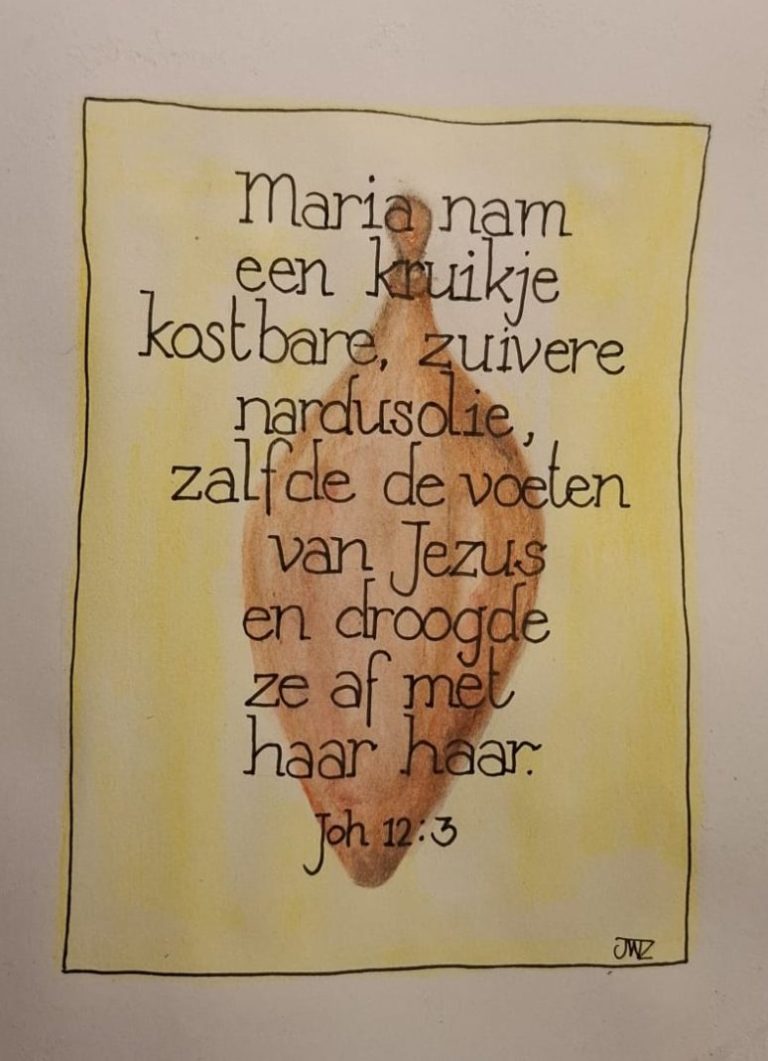 Maria nam
een kruikje
kostbare, zuivere
nardusolie,
zalfde de voeten
van Jezus
en droogde
ze af met
haar haar.
Joh 12:3
JWZ